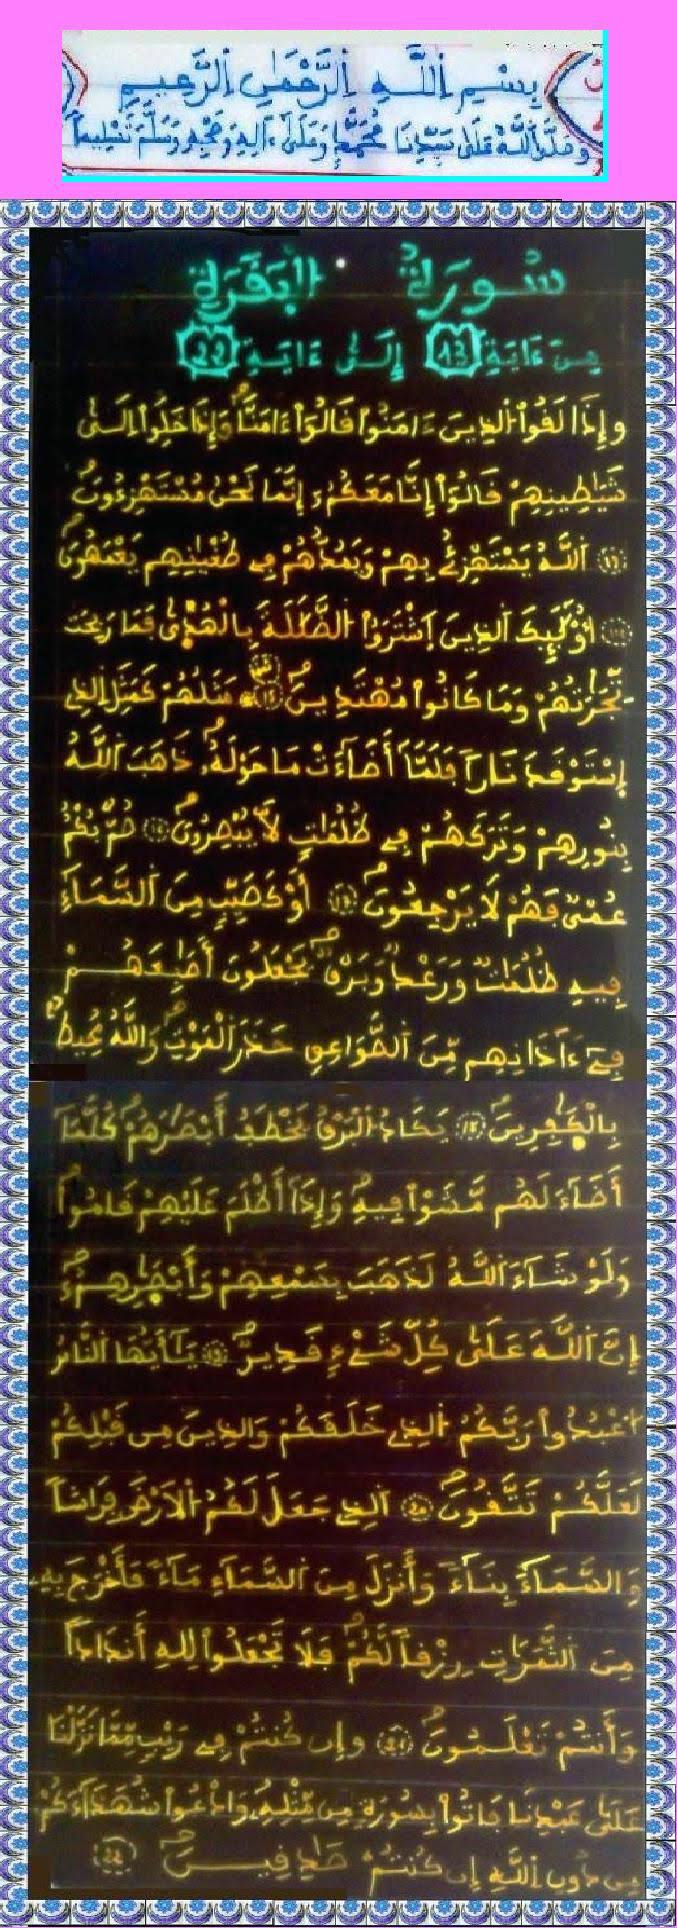 بِسْمِ اِللَّهِ اِلرَّحْمَٰنِ اِلرَّحِيمِ
وَصَلَّى اَللَّهُ عَلَىٰ سَيِّدِنَا مُحَمَّدٍ وَعَلَىٰ ءَالِهِ وَصَحْبِهِ وَسَلَّمَ تَسْلِيماً
سُورَةُ البَقَرَةِ
مِنَ ءَايَةِ 13 إِلَىٰ ءَايَةِ 22
وَإِذَا لَقُوا۟ اُلذِينَ ءَامَنُوا۟ قَالُوٓا۟ ءَامَنَّا وَإِذَا خَلَوِا۟ اِلَىٰ
شَيَٰطِينِهِمْ قَالُوٓا۟ إِنَّا مَعَكُمُۥٓ إِنَّمَا نَحْنُ مُسْتَهْزِءُونَ
اَللَّهُ يَسْتَهْزِئُ بِهِمْ وَيَمُدُّهُمْ فِے طُغْيَٰنِهِمْ يَعْمَهُونَ
أُو۟لَٰٓئِكَ اَلذِينَ اَشْتَرَوُا۟ اُلضَّلَٰلَةَ بِالْهُدَىٰ فَمَا رَبِحَت
تِّجَٰرَتُهُمْ وَمَا كَانُوا۟ مُهْتَدِينَ 15 مَثَلُهُمْ كَمَثَلِ اِلذِے
اِسْتَوْقَدَ نَاراً فَلَمَّآ أَضَآءَتْ مَا حَوْلَهُۥ ذَهَبَ اَللَّهُ
بِنُورِهِمْ وَتَرَكَهُمْ فِے ظُلُمَٰتٍ لَّا يُبْصِرُونَ 16 صُمٌّۢ بُكْمٌ
عُمْىٌ فَهُمْ لَا يَرْجِعُونَ 17 أَوْ كَصَيِّبٍ مِّنَ اَلسَّمَآءِ
فِيهِ ظُلُمَٰتٌ وَرَعْدٌ وَبَرْقٌ يَجْعَلُونَ أَصَٰبِعَهُمْ
فِےٓ ءَاذَانِهِم مِّنَ اَلصَّوَٰعِقِ حَذَرَ اَلْمَوْتِ وَاللَّهُ مُحِيطٌۢ
بِالْكَٰفِرِينَ 18 يَكَادُ اُلْبَرْقُ يَخْطَفُ أَبْصَٰرَهُمْ كُلَّمَآ
أَضَآءَ لَهُم مَّشَوْا۟ فِيهِ وَإِذَآ أَظْلَمَ عَلَيْهِمْ قَامُوا۟
وَلَوْ شَآءَ اَللَّهُ لَذَهَبَ بِسَمْعِهِمْ وَأَبْصَٰرِهِمُۥٓ
إِنَّ اَللَّهَ عَلَىٰ كُلِّ شَےْءٍ قَدِيرٌ 19 يَٰٓأَيُّهَا اَلنَّاسُ
اُعْبُدُوا۟ رَبَّكُمُ اُلذِے خَلَقَكُمْ وَالذِينَ مِن قَبْلِكُمْ
لَعَلَّكُمْ تَتَّقُونَ 20 اَلذِے جَعَلَ لَكُمُ اُلَارْضَ فِرَٰشاً
وَالسَّمَآءَ بِنَآءً وَأَنزَلَ مِنَ اَلسَّمَآءِ مَآءً فَأَخْرَجَ بِهِۦ
مِنَ اَلثَّمَرَٰتِ رِزْقاً لَّكُمْ فَلَا تَجْعَلُوا۟ لِلهِ أَندَاداً
وَأَنتُمْ تَعْلَمُونَ 21 وَإِن كُنتُمْ فِے رَيْبٍ مِّمَّا نَزَّلْنَا
عَلَىٰ عَبْدِنَا فَاتُوا۟ بِسُورَةٍ مِّن مِّثْلِهِۦ وَادْعُوا۟ شُهَدَآءَكُم
مِّن دُونِ اِللَّهِ إِن كُنتُمْ صَٰدِقِينَ 22